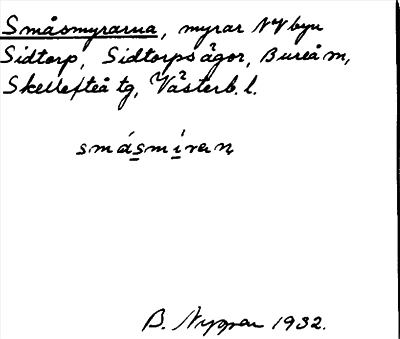 Småsmyrarna, myrar NV byn
Sidtorp, Sidtorps ägor, Bureå m,
Skellefteå tg, Västerb. l.
smásmiran
B. Nyman 1932.